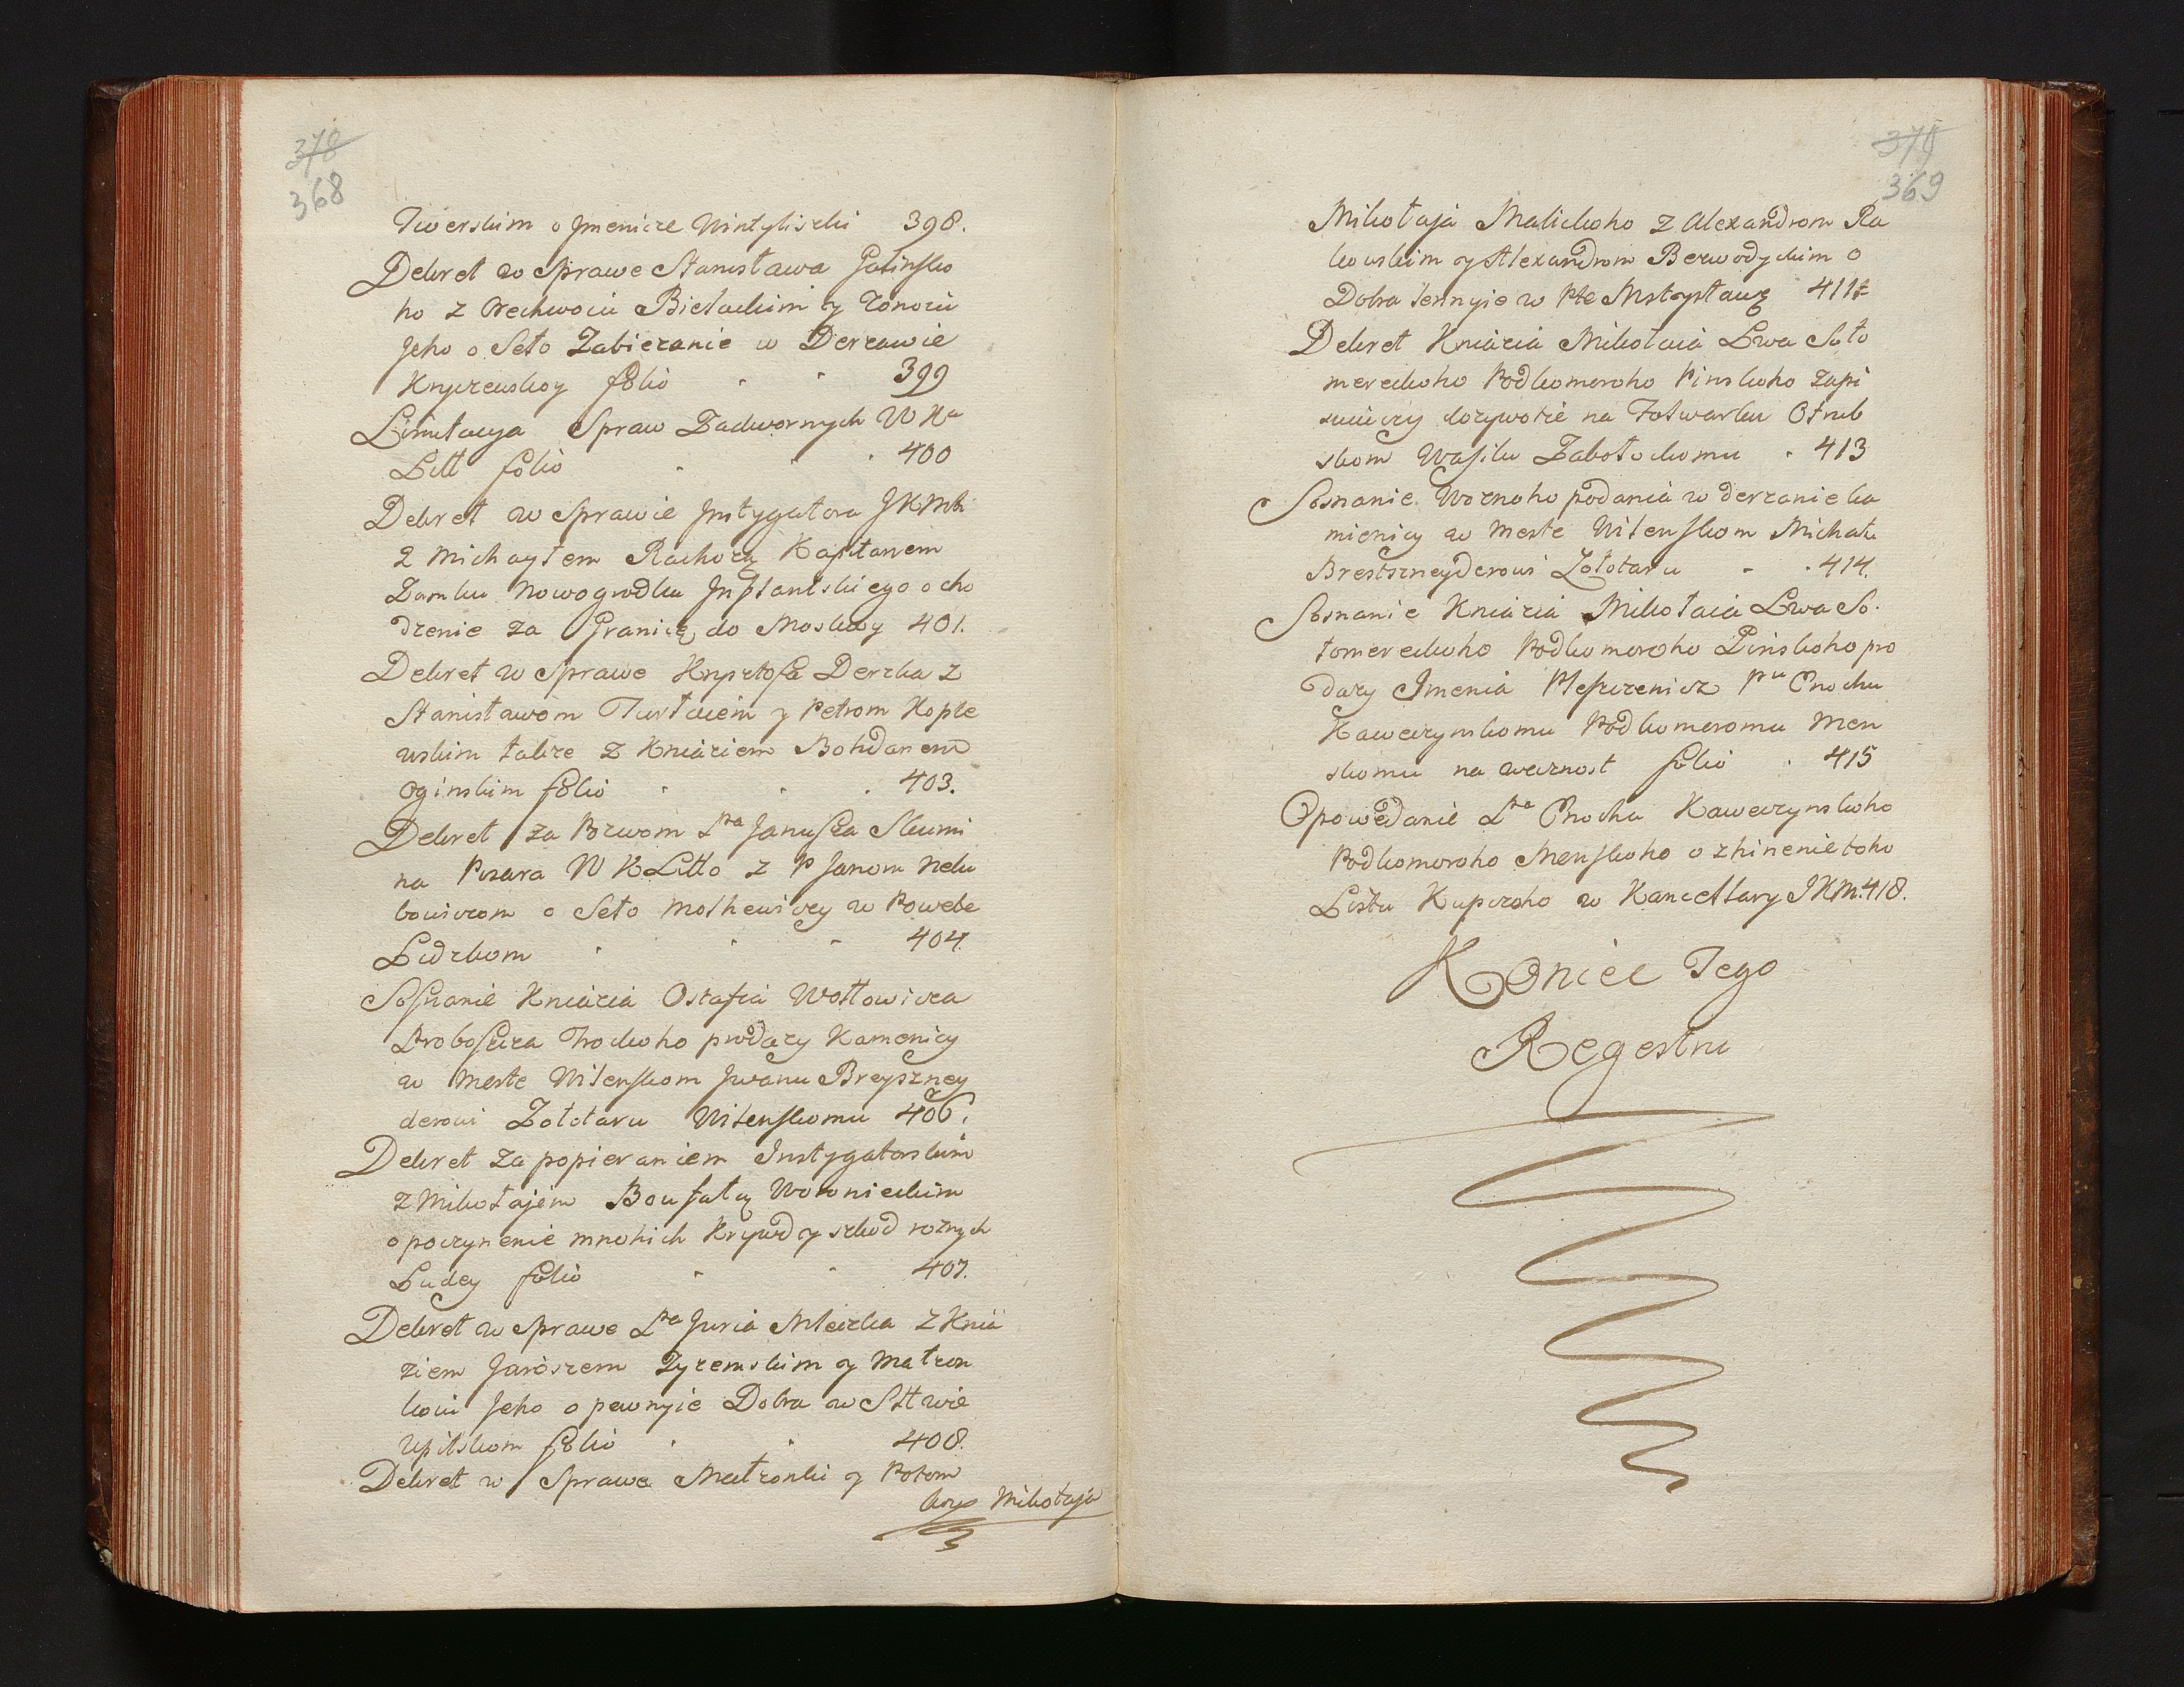 378
368
Twerskim o Jmenicze Wintyliszki 398.
Dekret w Sprawe Stanisława Golinsko
ho z Orechwoiu Bielackim y Zonoiu
Jeho o Seło Zabiezanie w Derzawie
Knyszewskoy folio 399
Limitacya Spraw Zadwornych W Xa
Litt folio 400
Dekret w Sprawie Jnstygatora JKMti
z Michayłem Rachozą Kapitanem
Zamku Nowogrodka Jnflantskiego o cho
dzenie za Granicę do Moskwy 401.
Dekret w Sprawe Krysztofa Derzka z
Stanisławom Turłaiem y Petrom Kople
wskim takze z Kniaziem Bohdanem
Oginskim folio 403.
Dekret za Pozwom Pna Janusza Skumi
na Pisara W X Litto z P Janom Nelu
bowiczom o Seło Mothewiczy w Powete
Lidzkom 404
Sosnanie Kniazia Ostafia Wołłowicza
Proboszcza Trockoho prodazy Kamenicy
w meste Wilenskom Jwanu Breyszney
derowi Zołotaru Wilenskomu 406.
Dekret za popieraniem Instygatorskim
z Mikołajem Boufałą Woronieckim
o poczynenie mnohich Krywd y szkod roznych
Ludey folio 407.
Dekret w Sprawe Pna Juria Mleczka z Knia
ziem Jaroszem Zyzemskim y Matzon
koiu Jeho o pewnyie Dobra w Sttwie
Upitskom folio 408.
Dekret w Sprawe Matzonki y Potom
kow Mikołaja
379
369
Mikołaja Malickoho z Alexandrom Ra
kowskim y Alexandrom Berwodyckim o
Dobra lennyie w Pte Mstysławę 411
Dekret Kniazia Mikołaia Lwa Soło
mereckoho Podkomoroho Pinskoho zapi
suiuczy dozywotie na Fołwarku Otrub
skom Wasilu Zabołockomu 413
Sosnanie Woznoho podania w derzanie ka
mienicy w meste Wilenskom Michału
Brestszneyderowi Zołotaru 414.
Sosnanie Kniazia Mikołaia Lwa So
łomereckoho Podkomoroho Pinskoho pro
dazy Imenia Pleszczenicz Pu Enochu
Kaweczynskomu Podkomoromu Men
skomu na wecznost folio 415
Opowedanie Pna Enocha Kaweczynskoho
Podkomoroho Menskoho o zhinenie toho
Listu Kupczoho w Kancellary JKM. 418.
Koniec Tego
Regestru